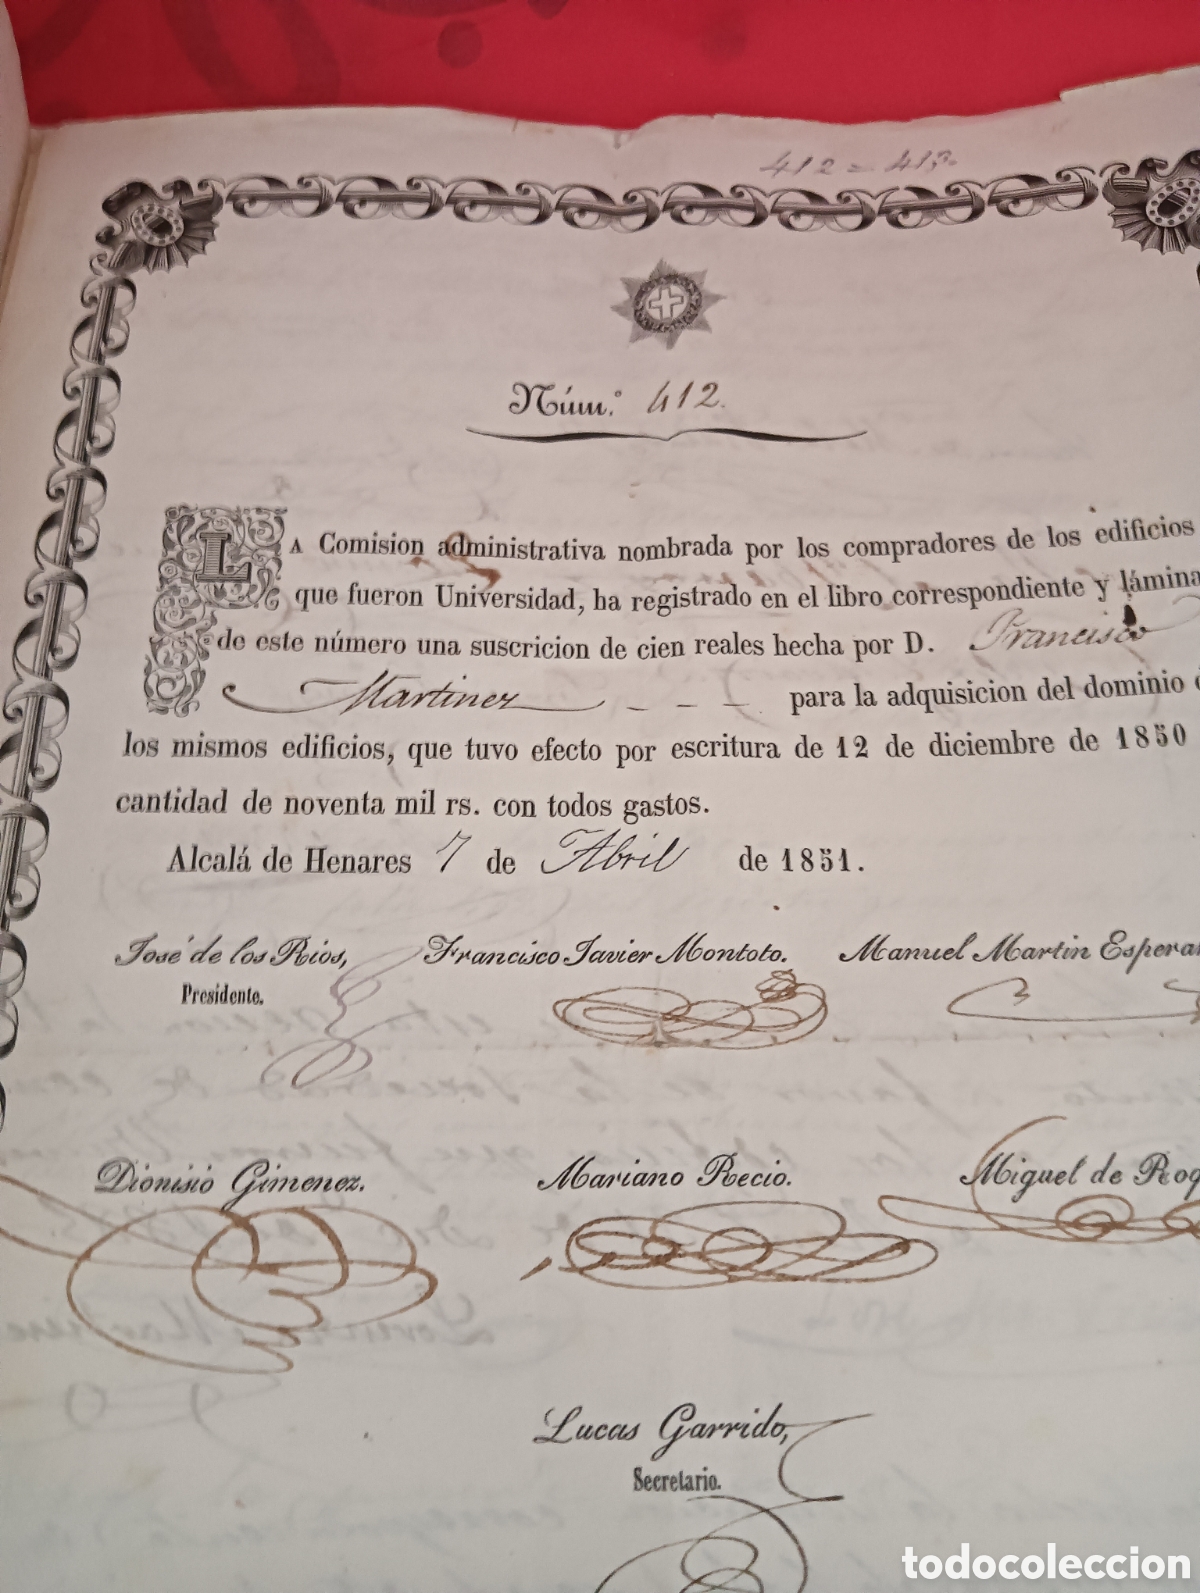 412 = 413.
Núm.° 412.
LA Comision administrativa nombrada por los compradores de los edificios
que fueron Universidad, ha registrado en el libro correspondiente y lámina
de este número una suscricion de cien reales hecha por D. Francisco
Martinez - - - para la adquisicion del dominio
los mismos edificios, que tuvo efecto por escritura de 12 de diciembre de 1850
cantidad de noventa mil rs. con todos gastos.
Alcalá de Henares 7 de Abril de 1851.
José de los Rios, Francisco Javier Montoto. Manuel Martin Espera
Presidente.
Dionisio Gimenez. Mariano Recio. Miguel de Roq
Lucas Garrido,
Secretario.
todocoleccion